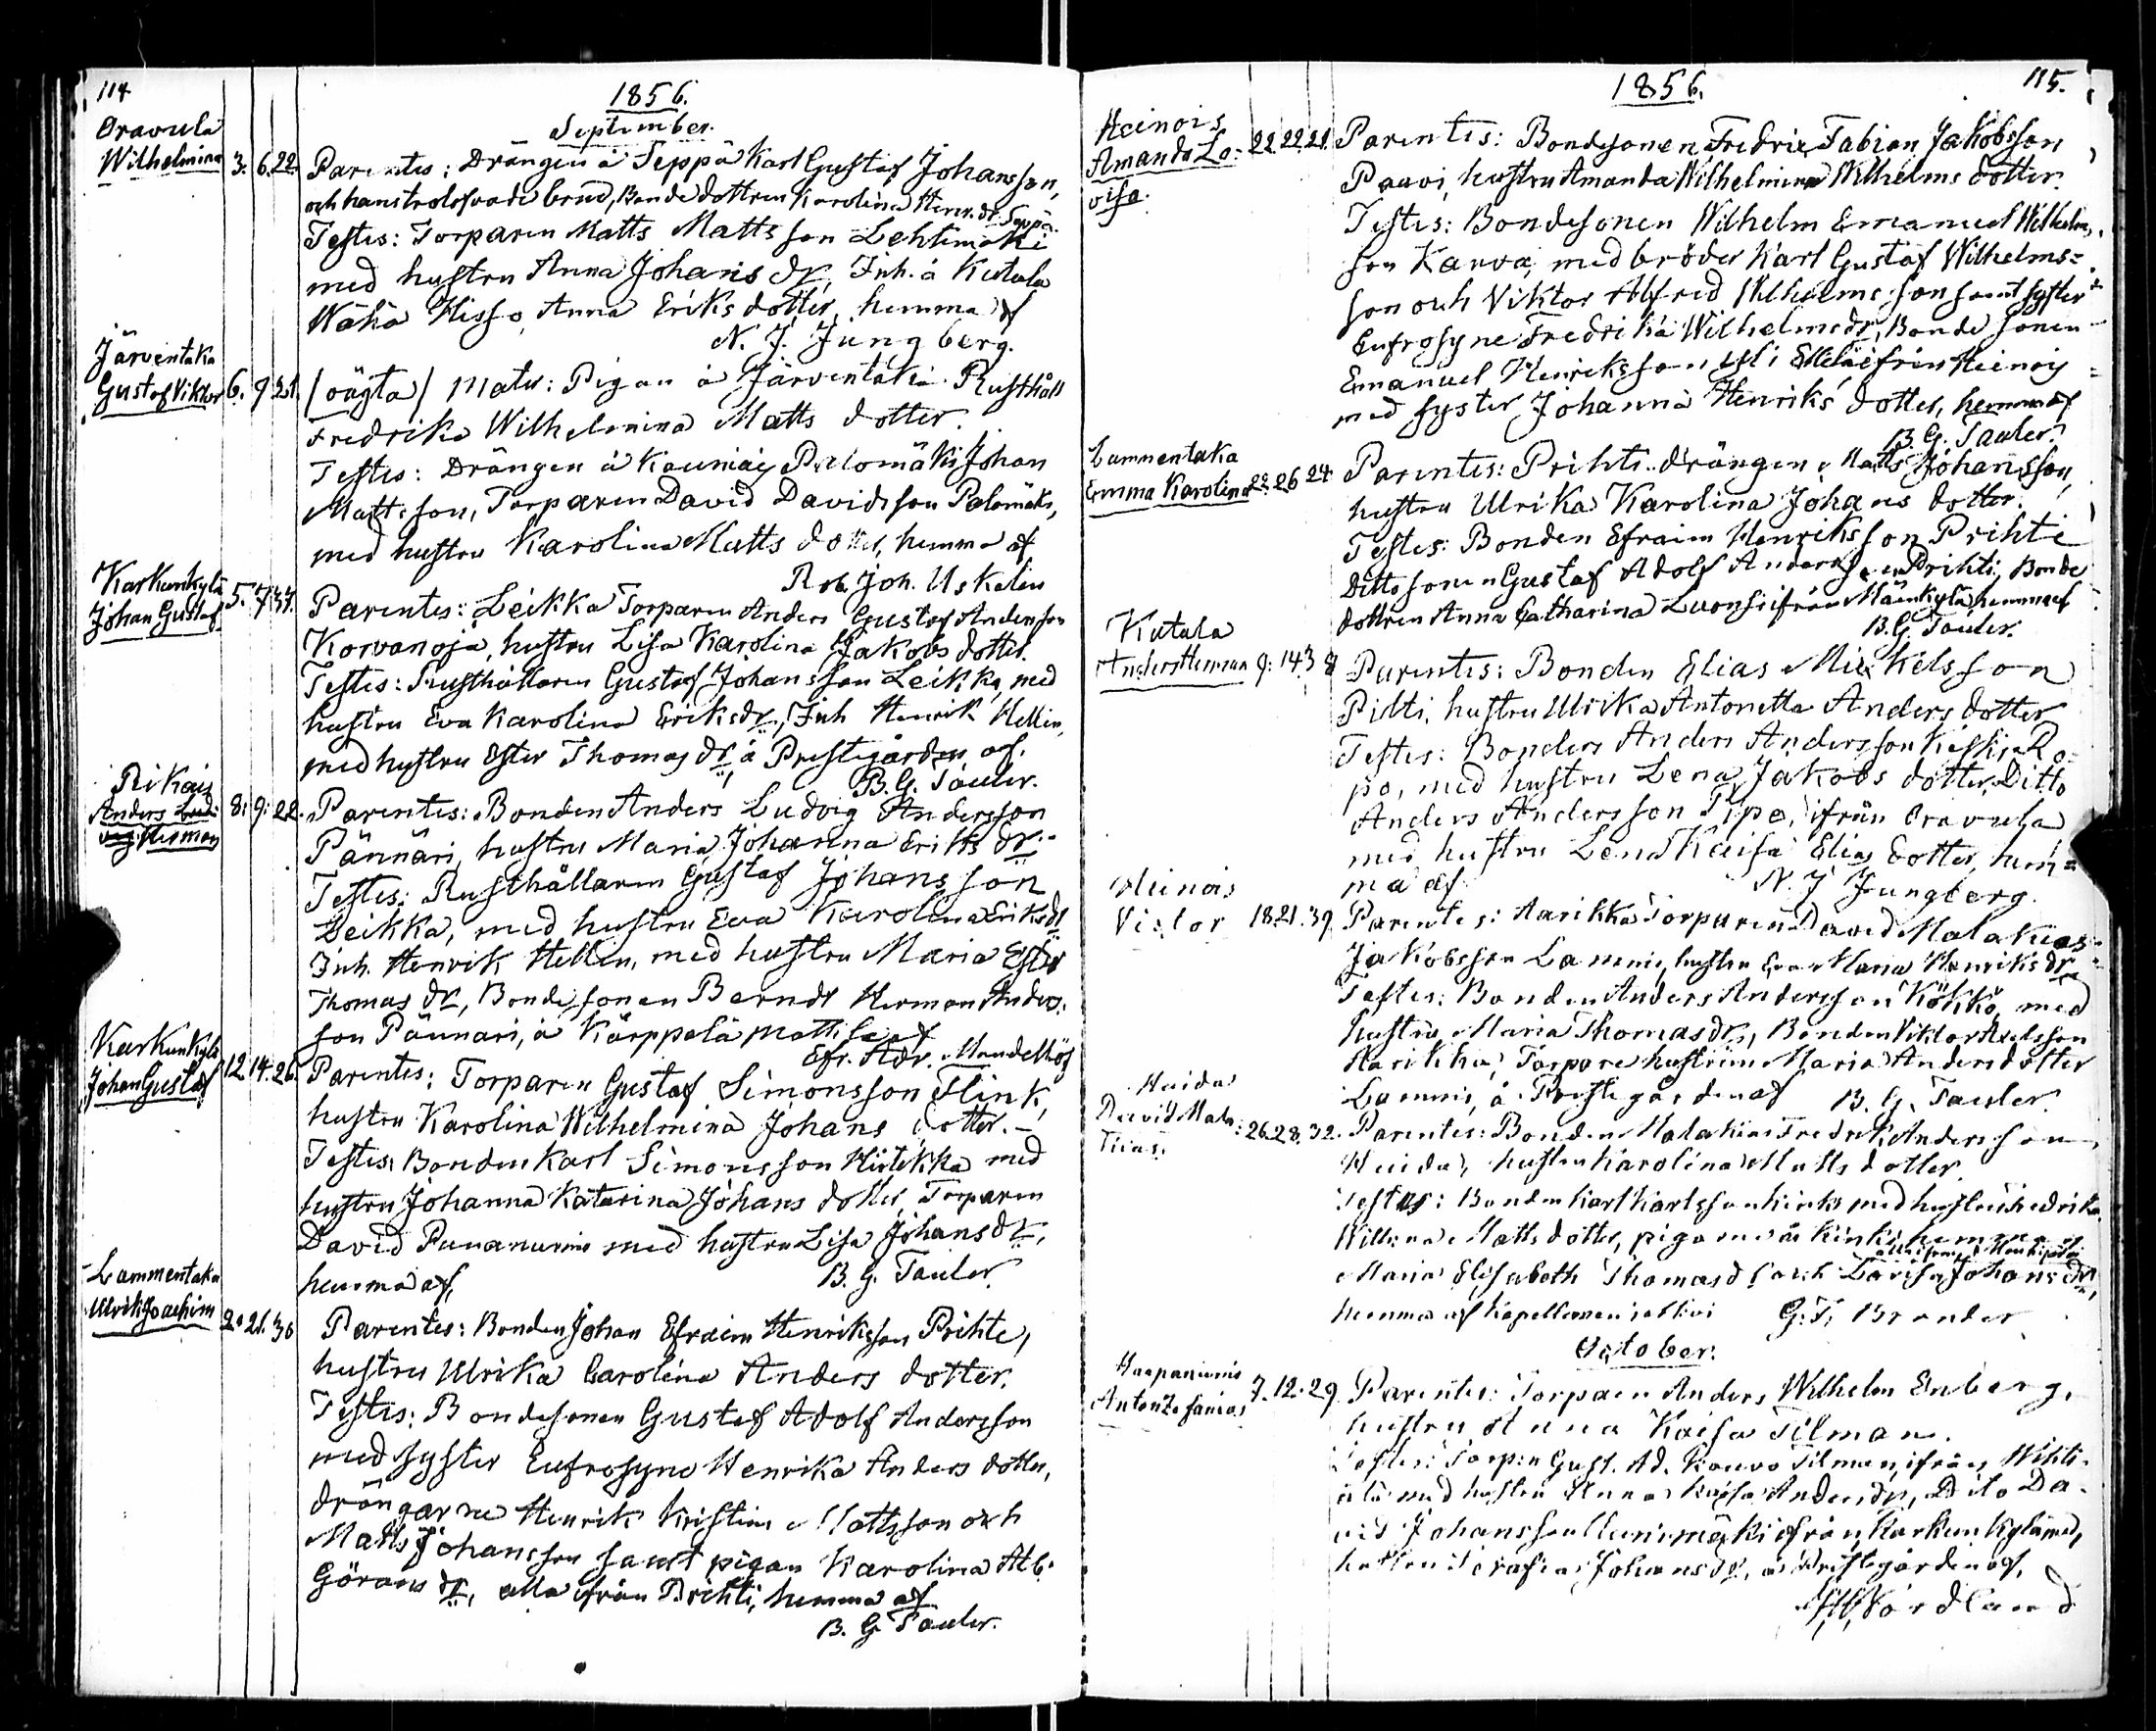 114
1856.
September.
Oravula
Wilhelmina 3. 6. 22.
Parentes: Drängen å Seppä Karl Gustaf Johansson,
och hans trolofvade brud, Bondedottren Karolina Henr. dr Seppä.
Testes: Torparen Matts Mattsson Lehtimäki
med hustru Anna Johans dr, Inh. å Kutala
Wähä Hisso Anna Eriks dotter, hemma af
N. J. Jungberg.
Järventaka
Gustaf Viktor 6. 9. 21.
/oägta/ Mater: Pigan å Järventaka Rusthåll
Fredrika Wilhelmina Matts dotter.
Testes: Drängen å Palomäki Johan
Mattsson, Torparen David Davidsson Palomäki,
med hustru Karolina Matts dotter, hemma af
Rob. Joh. Uskelin
Karkunkylä
Johan Gustaf 5. 7. 37.
Parentes: Leikka Torparen Anders Gustaf Andersson
Korvanoja, hustru Lisa Karolina Jakobs dotter.
Testes: Rusthållaren Gustaf Johansson Leikka, med
hustru Eva Karolina Eriksdr, Inh Henrik Hellin,
med hustru Ester Thomas dr, å Prestgården af.
B. G. Tauler.
Rikais
Anders Lud-
vig Herman 8. 9. 22.
Parentes: Bonden Anders Ludvig Andersson
Pännäri, hustru Maria Johanna Eriks dr.
Testes: Rusthållaren Gustaf Johansson
Leikka, med hustru Eva Karolina Eriksdr
Inh. Henrik Hellin, med hustru Maria Ester
Thomas dr, Bondesonen Berndt Herman Anders-
son Pännäri, å Kärppälä Mattila af
Efr. Adr. Mandellöf
Karkunkylä
Johan Gustaf 12. 14. 26.
Parentes: Torparen Gustaf Simonsson Flink,
hustru Karolina Wilhelmina Johans dotter.
Testes: Bonden Karl Simonsson med
hustru Johanna Katarina Johans dotter, Torparen
David Punanurmi med hustru Lisa Johansdr,
hemma af,
B. G. Tauler.
Lammentaka
Ulrik Joachim 20 21. 36
Parentes: Bonden Johan Efraim Henriksson Prihti,
hustru Ulrika Carolina Anders dotter.
Testes: Bondesonen Gustaf Adolf Andersson
med syster Eufrosyne Henrika Anders dotter,
drängarne Henrik Kristian Mattsson och
Matts Johansson samt pigan Karolina Alb.
Görans dr, alla ifrån Prihti, hemma af
B. G. Tauler.
1856.
115.
Heinois
Amanda Lo-
visa. 22. 22. 21.
Parentes: Bondesonen Fredric Fabian Jakobsson
Pauvi, hustru Amanda Wilhelmina Wilhelms dotter.
Testes: Bondesonen Wilhelm Emanuel Wilhelms-
son Karva, med bröder Karl Gustaf Wilhelms-
son och Viktor Alfred Wilhelms son samt syster
Eufrosyne Fredrika Wilhelmsdr, Bondesonen
Emanuel Henriksson ifrån Heinois
med syster Johanna Henriks dotter, hemma af
B. G. Tauler.
Lammentaka
Emma Karolina 22. 26 24
Parentes: Prihti drängen Matts Johansson,
hustru Ulrika Karolina Johans dotter.
Testes: Bonden Efraim Henriksson Prihti
Ditto sonen Gustaf Adolf Andersson Prihti, Bonde
dottren Anna Catharina ifrån hemma af
B. G. Tauler.
Kutala
Anders Herman 9. 14. 38
Parentes: Bonden Elias Mickelsson
Pihti, hustru Ulrika Antonetta Anders dotter
Testes: Bonden Anders Andersson Ro-
po, med hustru Lena Jakobs dotter, Ditto
Anders Andersson Pipo, ifrån Oravula
med hustru Lena Kaisa Elias dotter, hem-
ma af
N. J Jungberg.
Heinois
Victor 18. 21. 39.
Parentes: Aarikka Torparen David Malakias
Jakobsson Lammi, hustru Eva Maria Henriks dr
Testes: Bonden Anders Andersson Kökkö, med
hustru Maria Thomas dr, Bonden Viktor Axelsson
Aarikka, Torpare hustrun Maria Anders dotter
Lammi, å Prestgården af
B. G. Tauler.
Huida
David Mala-
kias. 26. 28. 32.
Parentes: Bonden Malakias Fredrik Andersson
Huida, hustru Karolina Matts dotter
Testes: Bonden Karl Karlsson Kinki med hustru Fredrika
Matts dotter, pigorna å Kinki
Maria Elisabeth Thomasdr och Lovisa Johans dr,
hemma af Kapellanen
G. F. Brander
October.
Haapaniemi
Anton 7. 12. 29.
Parentes: Torparen Anders Wilhelm Enberg,
hustru Anna Kaisa Tilman.
Testes: Torp:n Gust. Ad. Tilman, ifrån
med hustru Anna Kaisa Andersdr, Dito Da-
vid Johansson ifrån Karkunkylä med
hustru Johansdr, å Prestgården af,
Nordlund